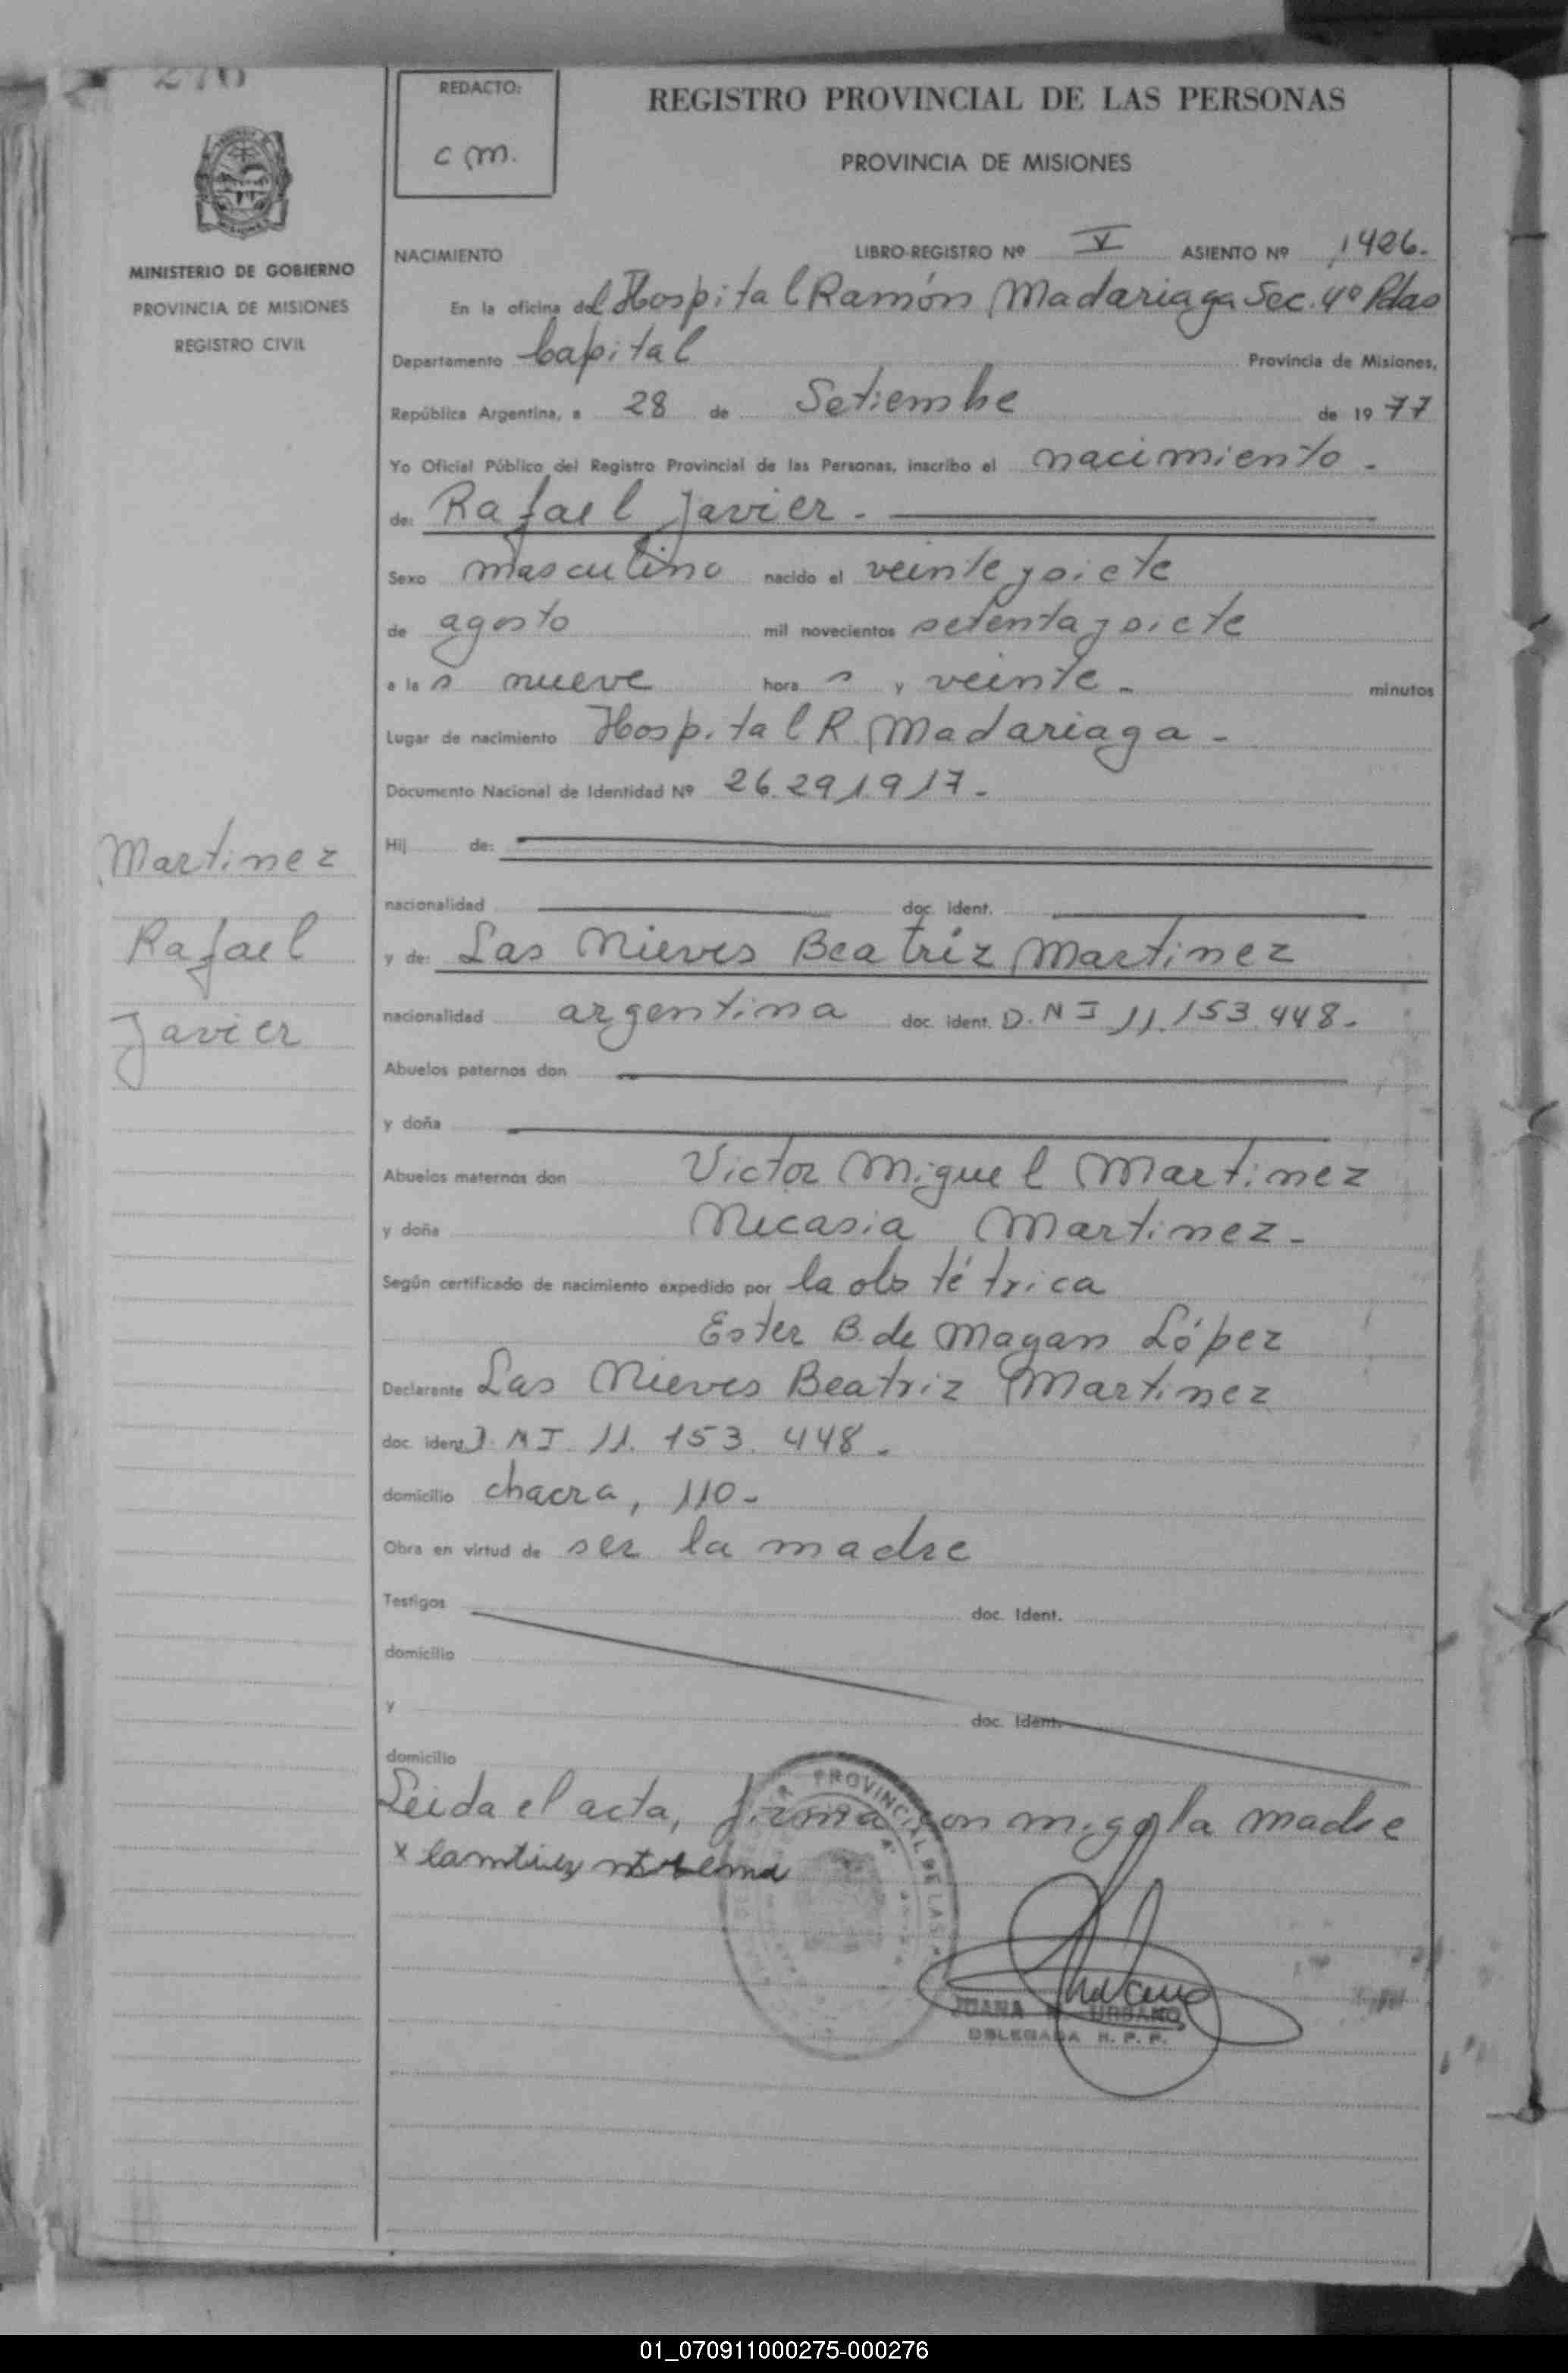 276
REDACTO:
c m.
REGISTRO PROVINCIAL DE LAS PERSONAS
PROVINCIA DE MISIONES
MINISTERIO DE GOBIERNO
PROVINCIA DE MISIONES
REGISTRO CIVIL
NACIMIENTO LIBRO-REGISTRO Nº V ASIENTO Nº 1426.
En la oficina del Hospital Ramón Madariaga Sec. 4º Pdas
Departamento Capital Provincia de Misiones,
República Argentina, a 28 de Setiembre de 1977
Yo Oficial Público del Registro Provincial de las Personas, inscribo el nacimiento.
de: Rafael Javier.
Sexo masculino nacido el veinte y siete
de agosto mil novecientos setenta y siete
a las nueve horas y veinte. minutos
Lugar de nacimiento Hospital R. Madariaga.
Documento Nacional de Identidad Nº 26.291.917.
Martinez
Rafael
Javier
Hij de:
nacionalidad doc. ident.
y de: Las Nieves Beatriz Martinez
nacionalidad argentina doc. ident. D.N I 11.153.448.
Abuelos paternos don
y doña
Abuelos maternos don Victor Miguel Martinez
y doña Nicasia Martinez.
Según certificado de nacimiento expedido por la obstétrica
Ester B. de Magan López
Declarante Las Nieves Beatriz Martinez
doc. ident D. N I. 11. 153. 448.
domicilio chacra, 110.
Obra en virtud de ser la madre
Testigos doc. Ident.
domicilio
y doc. Ident.
domicilio
Leida el acta, firma con migo la madre
PROVINCIAL DE LAS
JUANA URBANO
DELEGADA R. P. P.
01_070911000275-000276